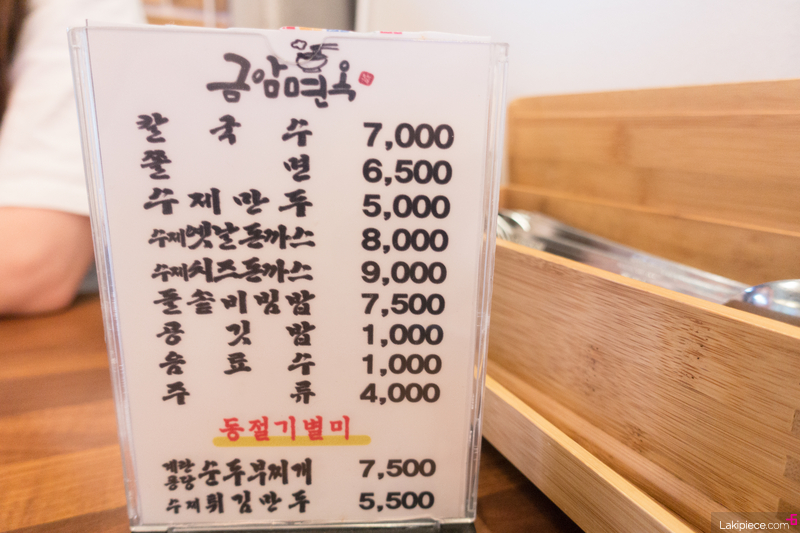 금암면옥
칼국수 7,000
쫄면 6,500
수제만두 5,000
수제옛날돈까스 8,000
수제치즈돈까스 9,000
돌솥비빔밥 7,500
공깃밥 1,000
음료수 1,000
주류 4,000
동절기별미
계란퐁당순두부찌개 7,500
수제튀김만두 5,500
Lakipiece.com